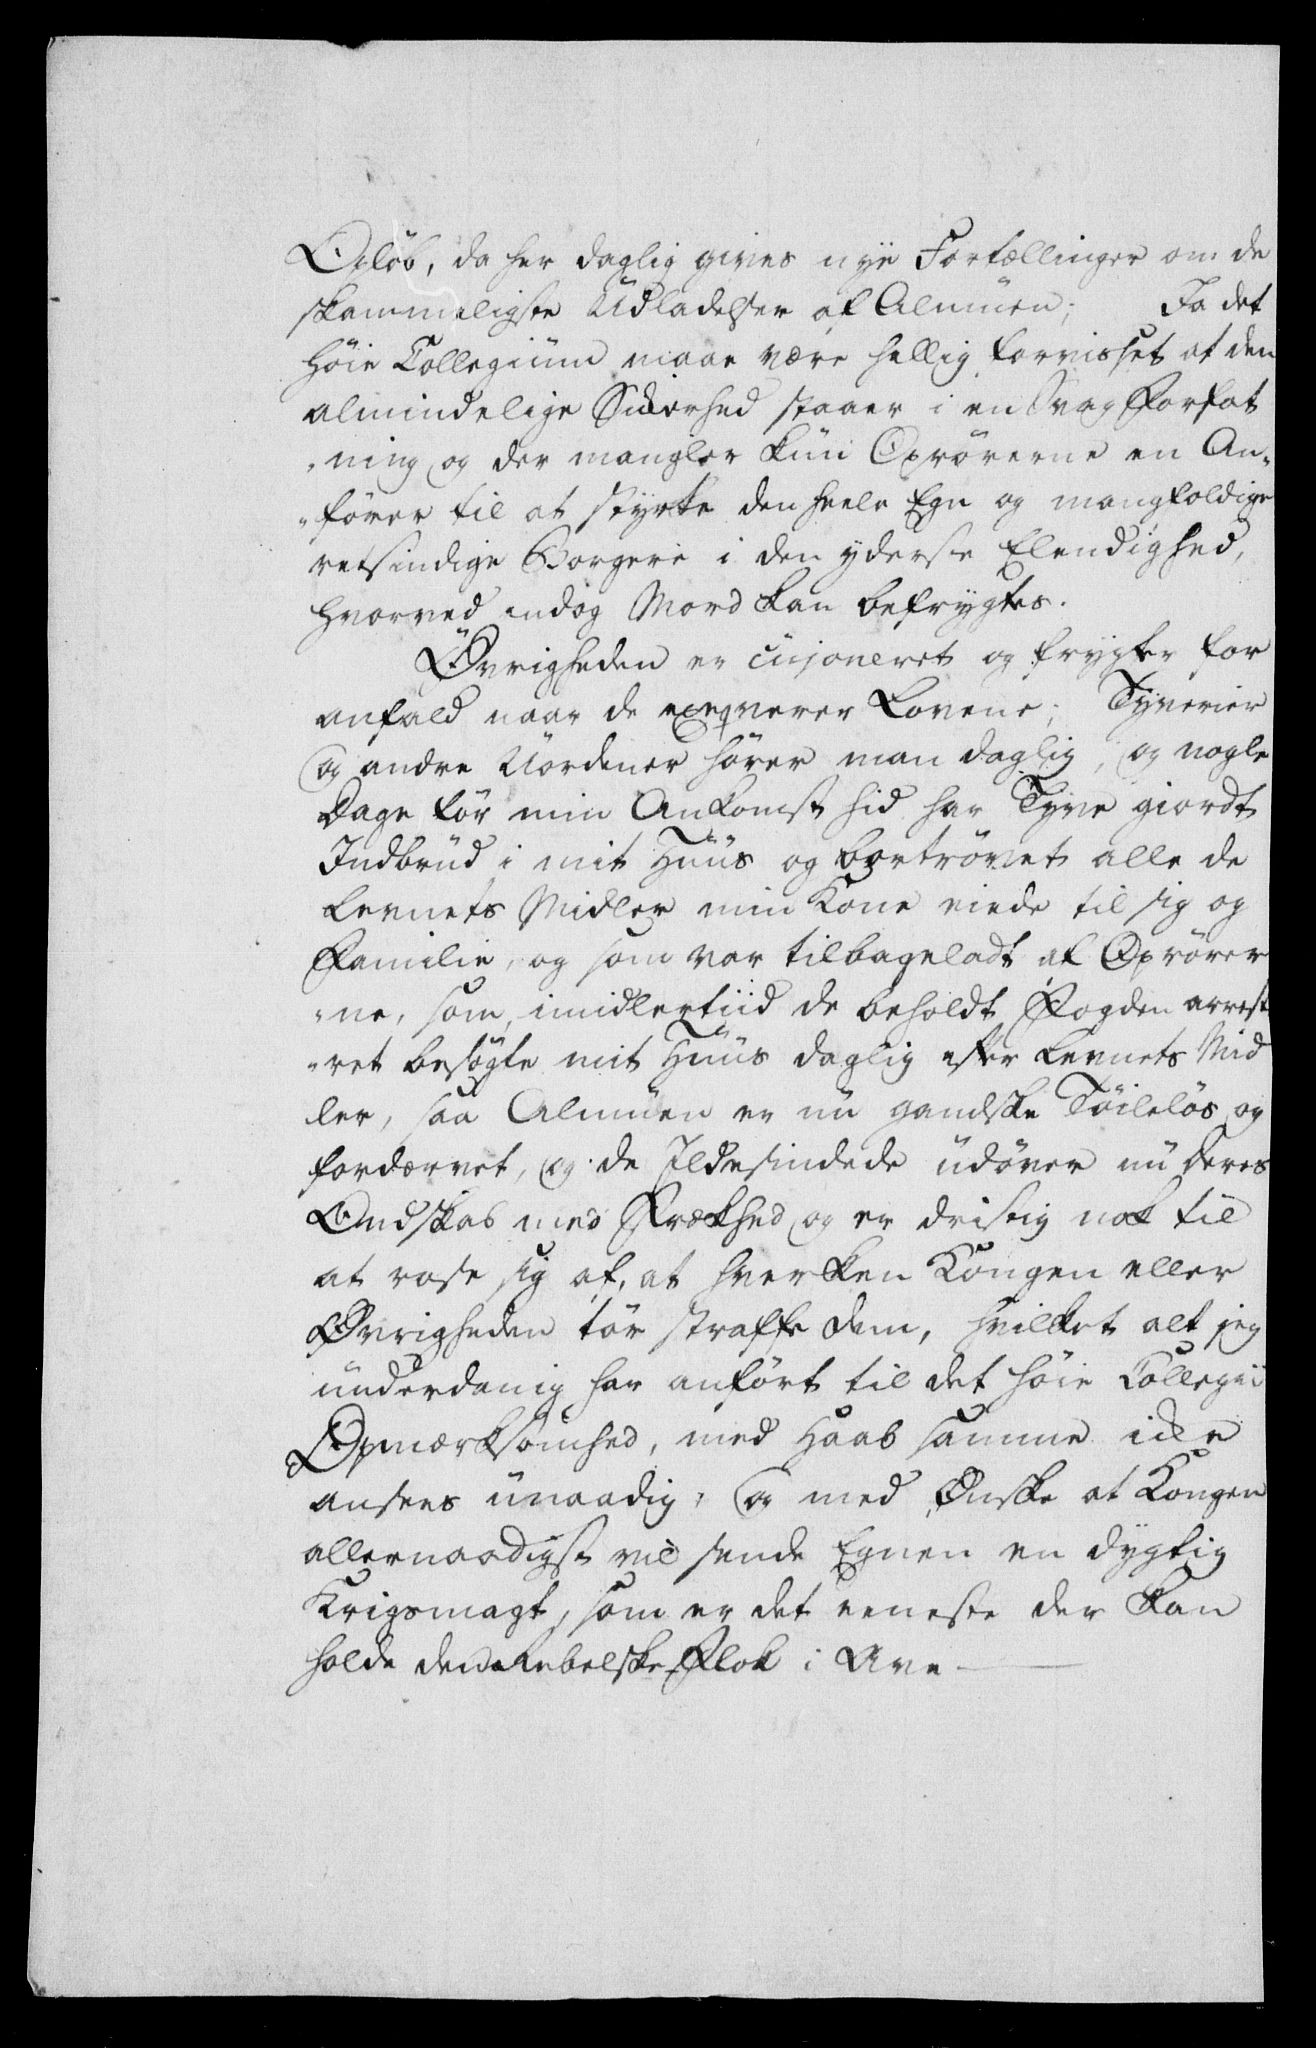 Opløb, da her daglig gives nye Fortællinger om de
skammeligste Udladelser af Almuen; Ja det
høie Collegium maae være hellig forvisset at den
almindelige Sikkerhed staaer i en Svag Forfat
"ning og der mangler kun Oprørerne en An"
"fører til at styrte den heele Egn og mangfoldige
retsindige Borgere i den yderste Elendighed,
hvorved endog Mord kan befrygtes.
Øvrigheden er cujoneret og frygter for
anfald naar de exeqverer Lovene; Tyverier
og andre Uordener hører man daglig, og nogle
Dage før min Ankomst hid har Tyve giordt
Indbrud i mit Huus og bortrøvet alle de
Levnets Midler min Kone eiede til sig og
Familie, og som var tilbageladt af Oprører
"ne, som, imidlertiid de beholdt Fogden arreste
"ret besøgte mit Huus daglig efter Levnets Mid
ler, saa Almuen er nu gandske Tøileløs og
fordærvet, og de Ildesindede udøver nu deres
Ondskab med Frækhed og er dristig nok til
at rose sig af, at hverken Kongen eller
Øvrigheden tør straffe dem, hvilket alt jeg
underdanig har anført til det høie Collegii
Opmærksomhed, med Haab samme icke
ansees unaadig, og med Ønske at Kongen
allernaadigst vil sende Egnen en dygtig
Krigsmagt, som er det eeneste der kan
holde den Rebelske Flok i Ave